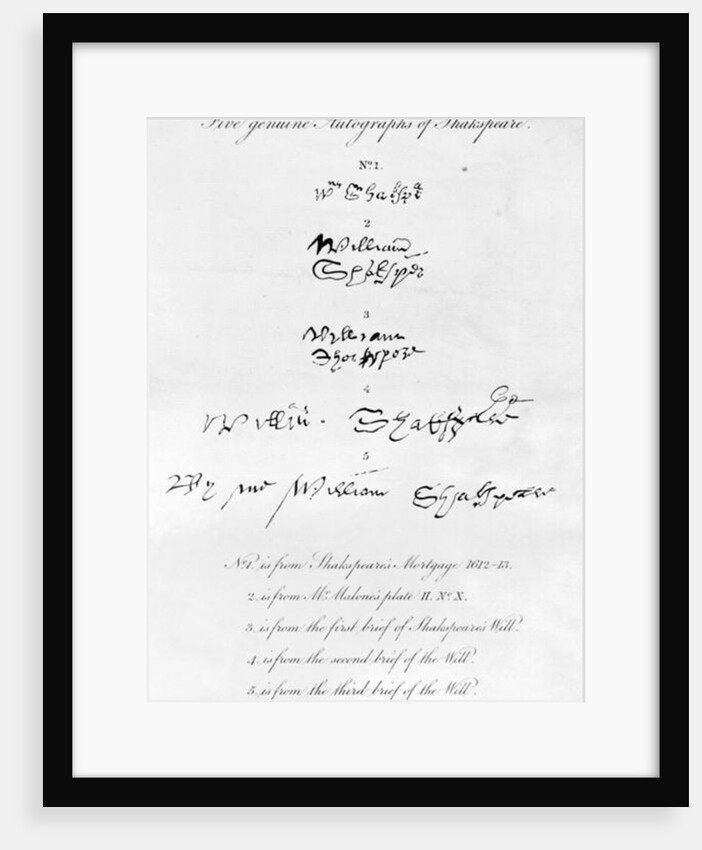 Five genuine Autographs of Shakspeare.
No. 1.
Wm Shakspe
2
William
Shakspere
3
William
Shakspere
4
Willm. Shakspere
5
By me William Shakspeare
No. 1. is from Shakspeare's Mortgage 1612-13.
2. is from Mr. Malone's plate II. No. X.
3. is from the first brief of Shakspeare's Will.
4. is from the second brief of the Will.
5. is from the third brief of the Will.